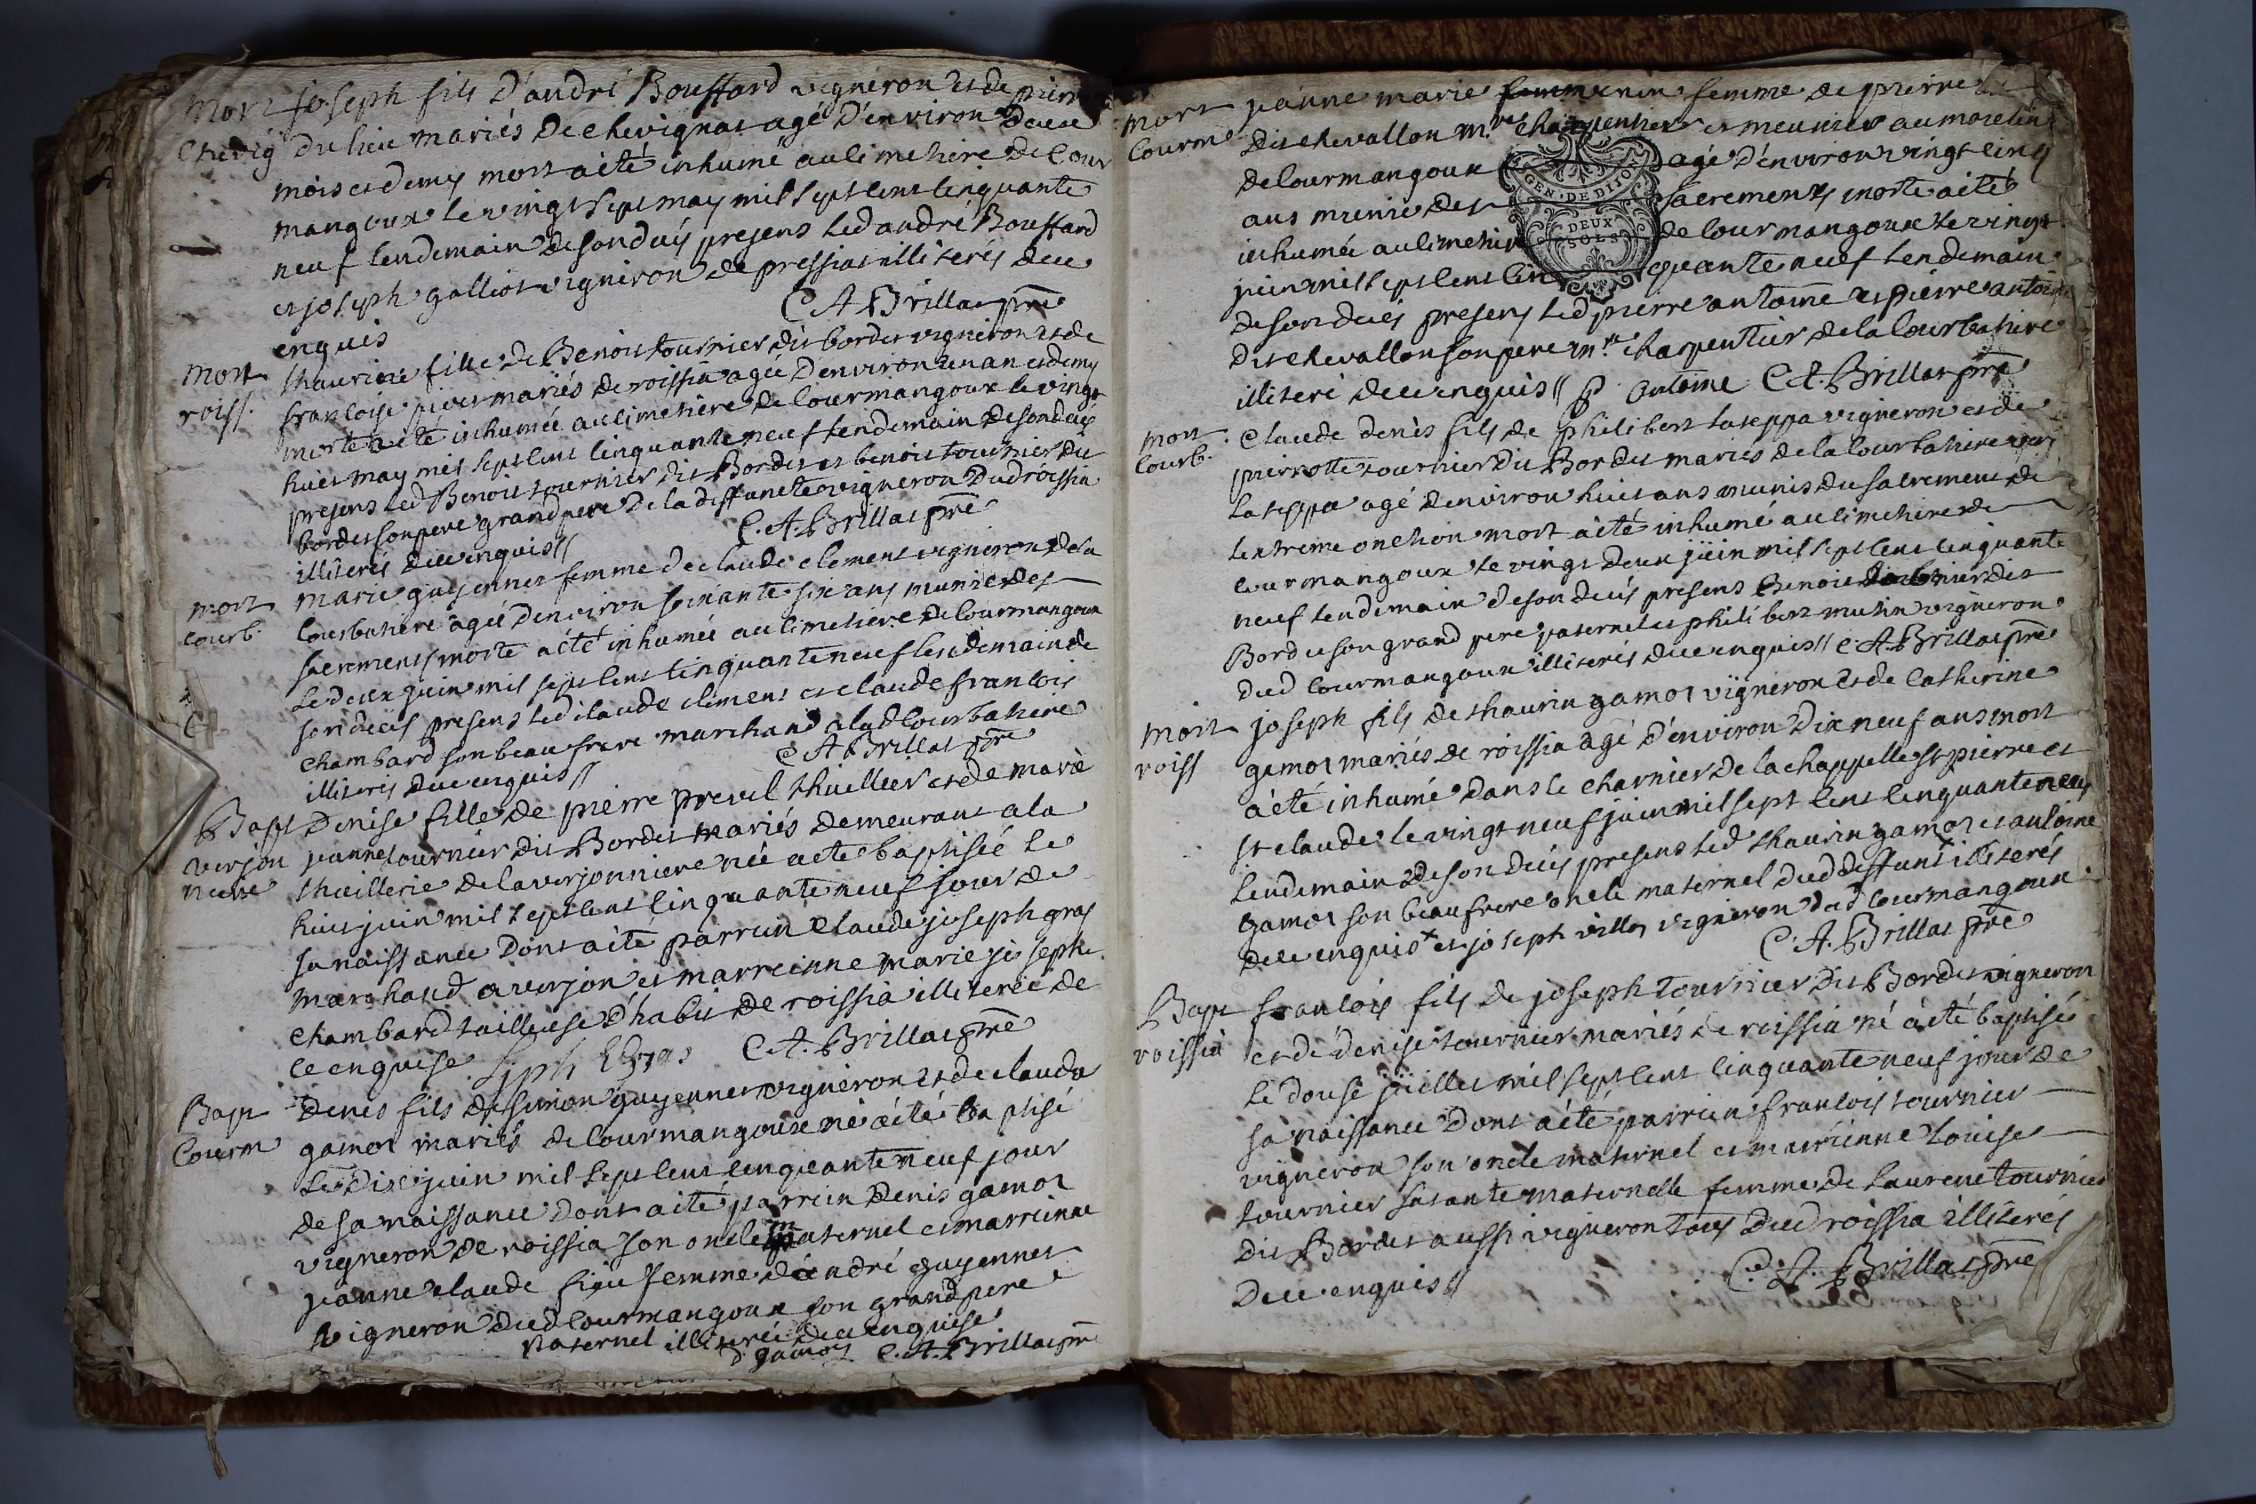 Mort joseph fils D'andré Bouffard vigneron et de pier
Chevig Du lieu mariés De chevignat agé D'environ Deux
mois et demy mort a été inhumé au cimetiere De Cour
mangoux le vingt sept may mil sept cent cinquante
neuf lendemain de son décés presens led andré Bouffard
et joseph galliot vigneron de pressiat illiterés de ce
enquis C A Brillat pre
Mort thaurine fille de Benoit tournier dit bordet vigneron et de
roiss. francoise pivet mariés de roissia agée D'environ un an et demy
morte a été inhumée au cimetiere de Courmangoux le vingt
huit may mil sept cent cinquante neuf lendemain de son décés
presens led Benoit tournier dit Bordet et benoit tournier dit
bordet son pere grand pere de la deffuncte vigneron Dud roissia
illiterés de ce enquis // C. A. Brillat pre
mort marie guyennet femme de claude clement vigneron de la
courb. Courbatiere agée D'environ soixante six ans munie des
sacremens morte a été inhumée au cimetiere de Courmangoux
le deux juin mil sept cent cinquante neuf lendemain de
son décés presens led claude clement et claude francois
chambard son beau frere marchand a lad Courbatiere
illiterés de ce enquis // C A Brillat pre
Bapt Denise fille de pierre prevel thuillier et de marie
verjon jeanne tournier dit Bordet mariés demeurant a la
niere thuillerie de la verjonniere née a eté baptisée le
huit juin mil sept cent cinquante neuf jour de
sa naissance Dont a été parrein Claude joseph gras
marchand a verjon et marreinne marie joseph
chambard tailleuse D'habit de roissia illiterée de
ce enquise C. A. Brillat pre
Bapt Denis fils de simon guyennet vigneron et de clauda
Courm gamot mariés de Courmangoux né a été baptisé
le dix juin mil sept cent cinquante neuf jour
de sa naissance dont a été parrein Denis gamot
vigneron de roissia son oncle maternel et marreinne
jeanne claude femme d'andré guyennet
vigneron dud Courmangoux son grand pere
paternel illiterée de ce enquise
D. gamot C. A. Brillat pre
mort jeanne marie femme de pierre
Courm dit chevallon mre charpentier et meunier au moulin
de Courmangoux agé D'environ vingt cinq
ans munie des sacremens morte a été
inhumée au cimetiere de Courmangoux le vingt
juin mil sept cent cinquante neuf lendemain
de son décés presens led pierre antoine et pierre antoine
dit chevallon son pere mre charpentier de la Courbatiere
illiteré de ce enquis // P antoine C A. Brillat pre
GEN · DE DIJON
DEUX
SOLS
mort Claude denis fils de philibert laseppa vigneron et de
Courb. pierrotte tournier dit Bordet mariés de la Courbatiere
laseppa agé denviron huit ans munis du sacrement de
lextreme onction mort a été inhumé au cimetiere de
courmangoux le vingt deux juin mil sept cent cinquante
neuf lendemain de son décés presens Benoit tournier dit
Bordet son grand pere paternel et philibert mutin vigneron
dud Courmangoux illiterés de ce enquis // C. A. Brillat pre
mort joseph fils de thaurin gamot vigneron et de Catherine
roiss gamot mariés de roissia agé D'environ dix neuf ans mort
a été inhumé dans le charnier de la chappelle st pierre et
st claude le vingt neuf juin mil sept cent cinquante neuf
lendemain de son décés presens led thaurin gamot et antoine
gamot son beau frere oncle maternel dud deffunt illiterés
de ce enquis x et joseph villet vigneron dud Courmangoux
C. A. Brillat pre
Bapt francois fils de joseph tournier dit Bordet vigneron
roissia et de denise tournier mariés de roissia né a été baptisé
le douse juillet mil sept cent cinquante neuf jour de
sa naissance Dont a été parrein francois tournier
vigneron son oncle maternel et marreinne Louise
tournier sa tante maternelle femme de Laurent tournier
dit Bordet aussi vigneron tous dud roissia illiterés
De ce enquis // C. A. Brillat pre